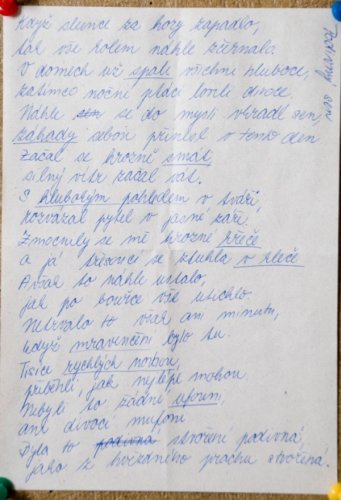 Podivný sen
Když slunce za hory zapadlo,
tak vše kolem náhle zčernalo.
V domech už spali všichni hluboce,
zatímco noční ptáci lovili divoce.
Náhle se do mysli vkradl sen,
záhady sebou přinesl v tento den
Začal se hrozně smát,
silný vítr začal vát.
S hlubokým pohledem v tváři,
rozvázal pytel v jasné záři.
Zmocnily se mě hrozné křeče
a já třesouci se ztuhla v kleče
Avšak to náhle ustalo,
jak po bouřce vše utichlo.
Netrvalo to však ani minutu,
když mravenčení bylo tu.
Tisíce rychlých nohou,
přiběhli, jak nejlépe mohou.
Nebyli to žádní
ani divocí mufloni
Byla to podivná stvoření podivná,
jako z hvězdného prachu stvořená.